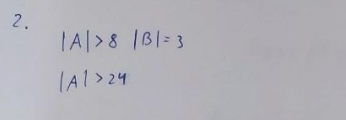 2.
|A|>8 |B|=3
|A|>24